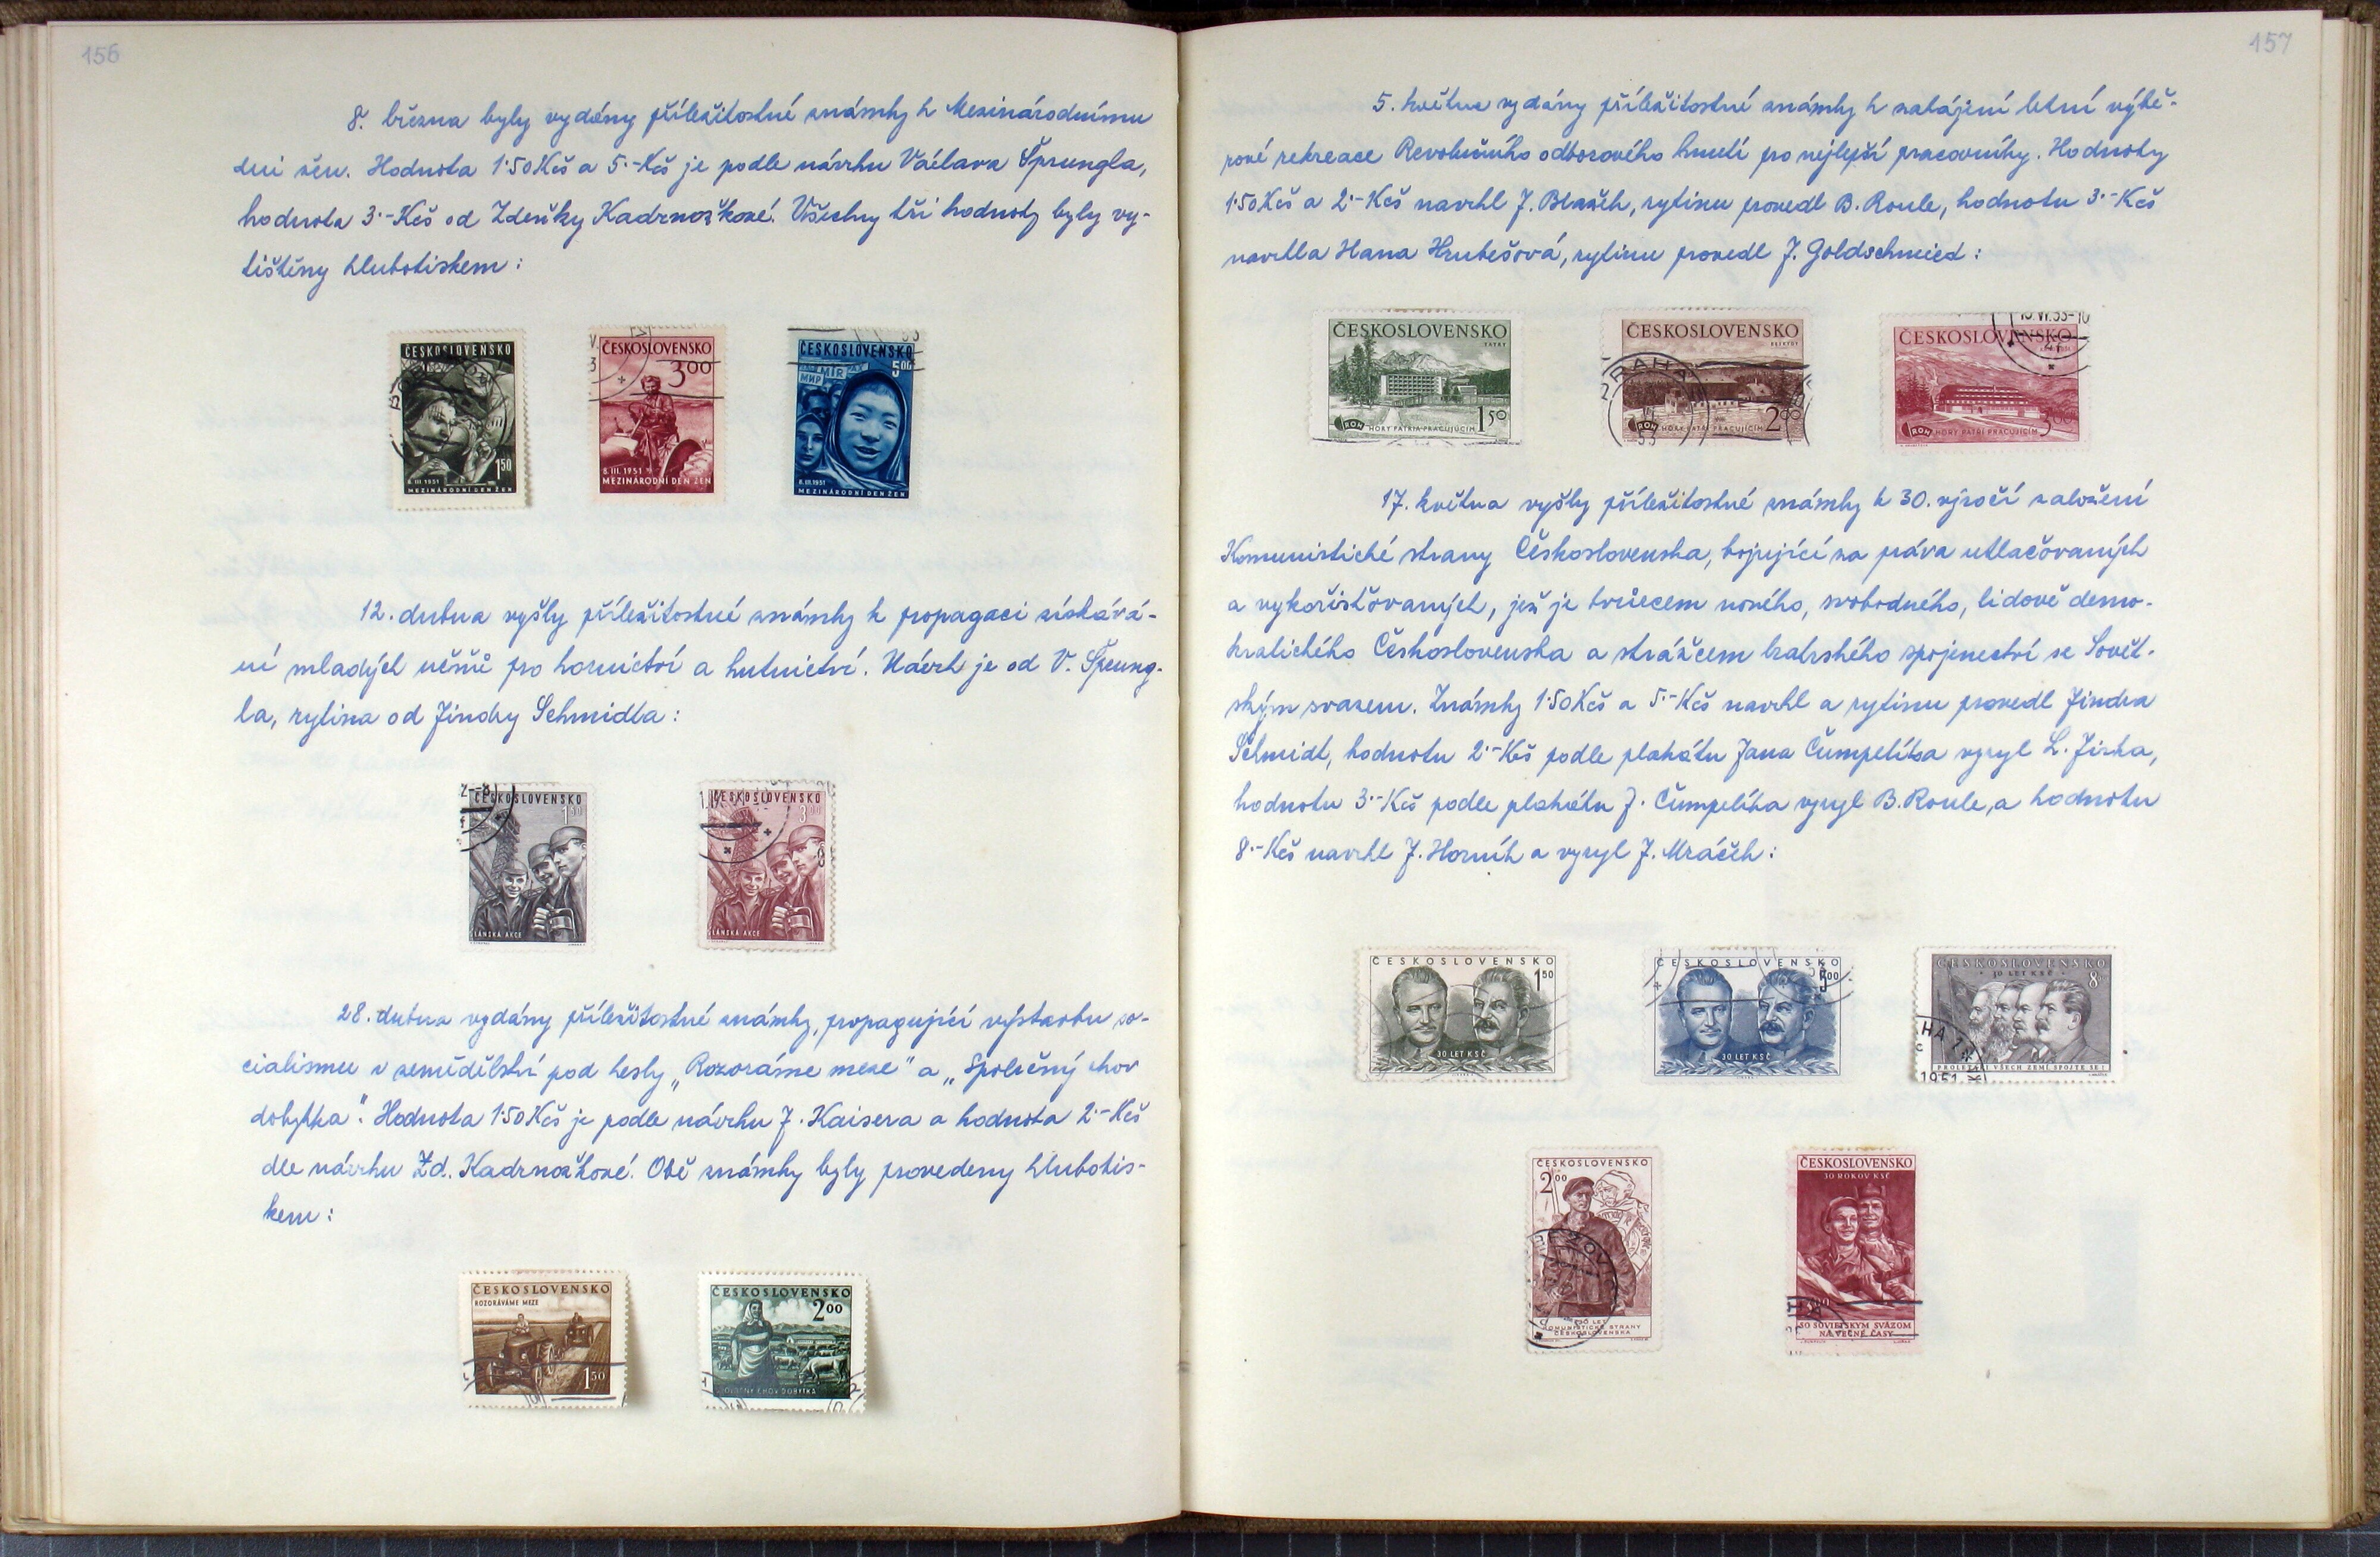 156
8. března byly vydány příležitostné známky k Mezinárodnímu
dni žen. Hodnota 1·50 Kčs a 5·- Kčs je podle návrhu Václava Šprungla,
hodnota 3·- Kčs od Zdeňky Kadrnožkové. Všechny tři hodnoty byly vy-
tištěny hlubotiskem:
ČESKOSLOVENSKO
1 50
8. III. 1951
MEZINÁRODNÍ DEN ŽEN
ČESKOSLOVENSKO
3 00
8. III. 1951
MEZINÁRODNÍ DEN ŽEN
ČESKOSLOVENSKO
5 00
MIR
МИР
8. III. 1951
MEZINÁRODNÍ DEN ŽEN
12. dubna vyšly příležitostné známky k propagaci získává-
ní mladých učňů pro hornictví a hutnictví. Návrh je od V. Šprung-
la, rytina od Jindry Schmidta:
ČESKOSLOVENSKO
1 50
LÁNSKÁ AKCE
ČESKOSLOVENSKO
3 00
LÁNSKÁ AKCE
28. dubna vydány příležitostné známky, propagující výstavbu so-
cialismu v zemědělství pod hesly „Rozoráme meze" a „Společný chov
dobytka". Hodnota 1·50 Kčs je podle návrhu J. Kaisera a hodnota 2·- Kčs
dle návrhu Zd. Kadrnožkové. Obě známky byly provedeny hlubotis-
kem:
ČESKOSLOVENSKO
ROZORÁVÁME MEZE
1 50
ČESKOSLOVENSKO
2 00
SPOLEČNÝ CHOV DOBYTKA
157
5. května vydány příležitostné známky k zahájení letní výbě-
rové rekreace Revolučního odborového hnutí pro nejlepší pracovníky. Hodnoty
1·50 Kčs a 2·- Kčs navrhl J. Blažek, rytinu provedl B. Roule, hodnotu 3·- Kčs
navrhla Hana Hrubešová, rytinu provedl J. Goldschmied:
ČESKOSLOVENSKO
TATRY
ROH HORY PATRIA PRACUJÚCIM 1 50
ČESKOSLOVENSKO
BESKYDY
PRAHA
53
ROH HORY PATŘÍ PRACUJÍCÍM 2 00
ČESKOSLOVENSKO
15.VI.53-10
ROH HORY PATŘÍ PRACUJÍCÍM 3 00
17. května vyšly příležitostné známky k 30. výročí založení
Komunistické strany Československa, bojující za práva utlačovaných
a vykořisťovaných, jež je tvůrcem nového, svobodného, lidově demo-
kratického Československa a strážcem bratrského spojenectví se Sovět-
ským svazem. Známky 1·50 Kčs a 5·- Kčs navrhl a rytinu provedl Jindra
Schmidt, hodnotu 2·- Kčs podle plakátu Jana Čumpelíka vyryl L. Jirka,
hodnotu 3·- Kčs podle plakátu J. Čumpelíka vyryl B. Roule, a hodnotu
8·- Kčs navrhl J. Horník a vyryl J. Mráček:
ČESKOSLOVENSKO
1 50
30 LET KSČ
ČESKOSLOVENSKO
5 00
30 LET KSČ
ČESKOSLOVENSKO
30 LET KSČ
8
HA 1
1951
PROLETÁŘI VŠECH ZEMÍ SPOJTE SE!
ČESKOSLOVENSKO
2 00
30 LET
KOMUNISTICKÉ STRANY
ČESKOSLOVENSKA
ČESKOSLOVENSKO
30 ROKOV KSČ
SO SOVIETSKYM SVÄZOM
NA VEČNÉ ČASY